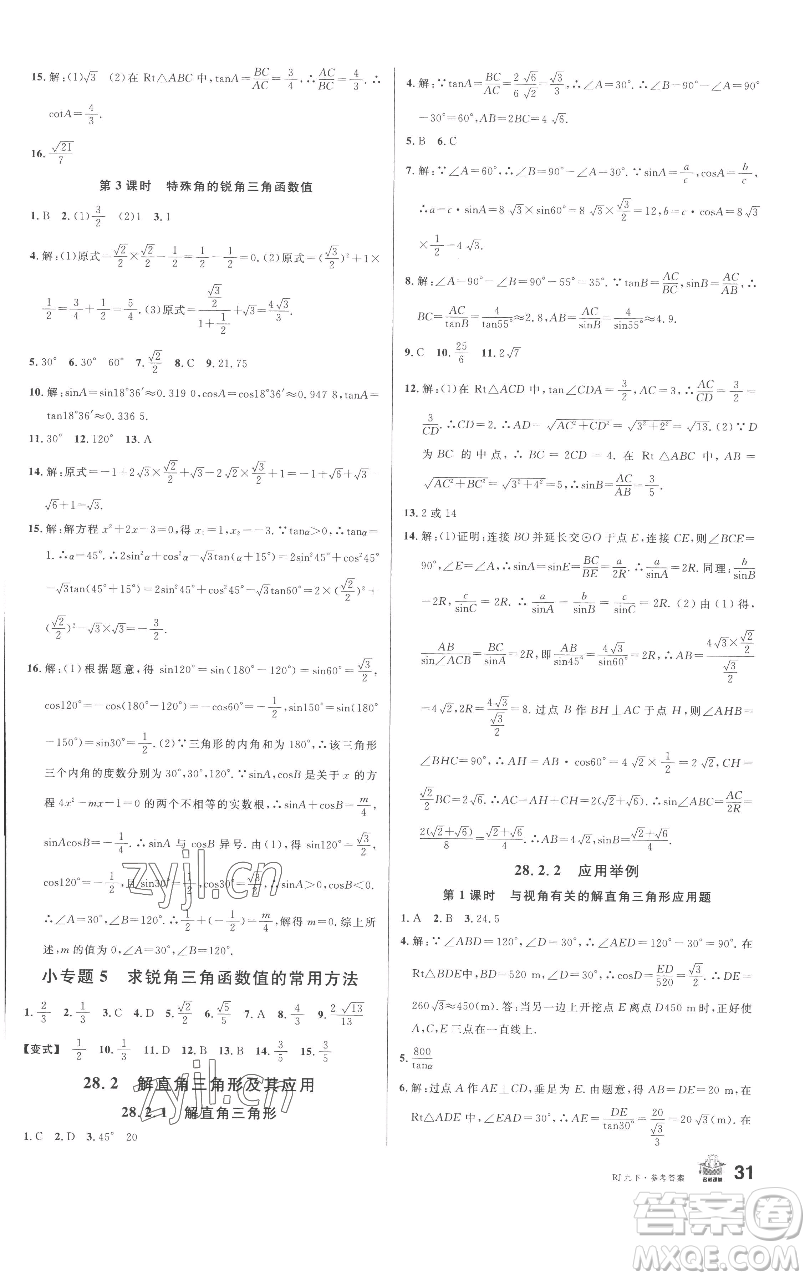 15. 解:(1)√3 (2)在 Rt△ABC 中,tanA=BC/AC=3/4,∴AC/BC=4/3. ∴
cotA=4/3.
16. √21/7
第 3 课时 特殊角的锐角三角函数值
1. B 2. (1)3/2 (2)1 3. 1
4. 解:(1)原式=√2/2×√2/2-1/2=1/2-1/2=0. (2)原式=(√3/2)²+1×
1/2=3/4+1/2=5/4. (3)原式=(√3/2)/(1+1/2)+√3=4√3/3.
5. 30° 6. 30° 60° 7. √2/2 8. C 9. 21.75
10. 解:sinA=sin18°36′≈0.319 0,cosA=cos18°36′≈0.947 8,tanA=
tan18°36′≈0.336 5.
11. 30° 12. 120° 13. A
14. 解:原式=-1+2√3×√2/2-√2×√2/2+1=-1+√6-1+1=
√6-1=
15. 解:解方程 x²+2x-3=0,得 x₁=1,x₂=-3. ∵tanα>0,∴tanα=
1. ∴α=45°. ∴2sin²α+cos²α-√3tan(α+15°)=2sin²45°+cos²45°
-√3tan(45°+15°)=2sin²45°+cos²45°-√3tan60°=2×(√2/2)²+
(√2/2)²-√3×√3=-3/2.
16. 解:(1)根据题意,得 sin120°=sin(180°-120°)=sin60°=√3/2,
cos120°=-cos(180°-120°)=-cos60°=-1/2,sin150°=sin(180°
-150°)=sin30°=1/2. (2)∵三角形的内角和为180°,∴该三角形
三个内角的度数分别为 30°,30°,120°. ∵sinA,cosB 是关于 x 的方
程 4x²-mx-1=0 的两个不相等的实数根,∴sinA+cosB=m/4,
sinAcosB=-1/4. ∴sinA 与 cosB 异号. 由(1),得 sin120°=√3/2,
cos120°=-1/2,且sin30°=1/2,cos30°=√3/2,sinAcosB=-1/4,
∴∠A=30°,∠B=120°. ∴1/2+(-1/2)=m/4. 解得 m=0. 综上所
述,m 的值为 0,∠A=30°,∠B=120°.
小专题 5 求锐角三角函数值的常用方法
1. 2/3 2. 1/3 3. C 4. D 5. √2/2 6. √5/5 7. A 8. 1/3 9. 2√13/13
【变式】 1/2 10. 1/3 11. D 12. D 13. B 14. 3/5 15. 3/5
28.2 解直角三角形及其应用
28.2.1 解直角三角形
1. C 2. D 3. 45° 20
4. 解:∵tanA=BC/AC=2√6/6√2=√3/3,∴∠A=30°. ∴∠B=90°-∠A=90°
-30°=60°,AB=2BC=4√6.
5. B 6. C
7. 解:∵∠A=60°,∴∠B=90°-∠A=30°. ∵sinA=a/c,cosA=b/c,
∴a=c·sinA=8√3×sin60°=8√3×√3/2=12,b=c·cosA=8√3
×1/2=4√3.
8. 解:∠A=90°-∠B=90°-55°=35°. ∵tanB=AC/BC,sinB=AC/AB,∴
BC=AC/tanB=4/tan55°≈2.8,AB=AC/sinB=4/sin55°≈4.9.
9. C 10. 25/6 11. 2√7
12. 解:(1)在 Rt△ACD 中,∵tan∠CDA=3/2,AC=3,∴AC/CD=3/2,即
3/CD=3/2. ∴CD=2. ∴AD=√(AC²+CD²)=√(3²+2²)=√13. (2)∵D
为 BC 的中点,∴BC=2CD=2×2=4. 在 Rt△ACB 中,AB=
√(AC²+BC²)=√(3²+4²)=5. ∴sinB=AC/AB=3/5.
13. 2 或 14
14. 解:(1)证明:连接 BO 并延长交⊙O 于点 E,连接 CE,则∠BCE=
90°,∠A=∠E. ∴sinA=sinE=BC/BE=a/2R. ∴a/sinA=2R. 同理:b/sinB
=2R,c/sinC=2R. ∴a/sinA=b/sinB=c/sinC=2R. (2)由(1),得
AB/sin∠ACB=AC/sinB=2R,即AB/sin45°=4√3/sin60°=2R. ∴AB=(4√3×√2/2)/(√3/2)
=4√2,2R=4√3/(√3/2)=8. 过点 B 作 BH⊥AC 于点 H,则∠AHB=
∠BHC=90°,∴AH=AB·cos60°=4√2×1/2=2√2,CH=
√2/2BC=2√6. ∴AC=AH+CH=2(√2+√6). ∴sinB=AC/2R=
2(√2+√6)/8=(√2+√6)/4.
28.2.2 应用举例
第 1 课时 与视角有关的解直角三角形应用题
1. A 2. B 3. 24.5
4. 解:∵∠ABD=120°,∠D=30°,∴∠AED=120°-30°=90°. 在
Rt△BDE 中,BD=520 m,∠D=30°,∴cosD=ED/520=√3/2. ∴ED=
260√3≈450(m). 答:当另一边上开挖点 E 离点 D450 m 时,正好
A,C,E 三点在一直线上.
5. 800/tanα
6. 解:过点 A 作 AE⊥CD,垂足为 E. 由题意,得 DE=CE=20 m. 在
Rt△ADE 中,∠EAD=30°,∴AE=DE/tan30°=20/(√3/3)=20√3(m).
RJ九下·参考答案 名校课堂 31
zyjl.cn
zyjl.cn
答案圈
MXQE.COM